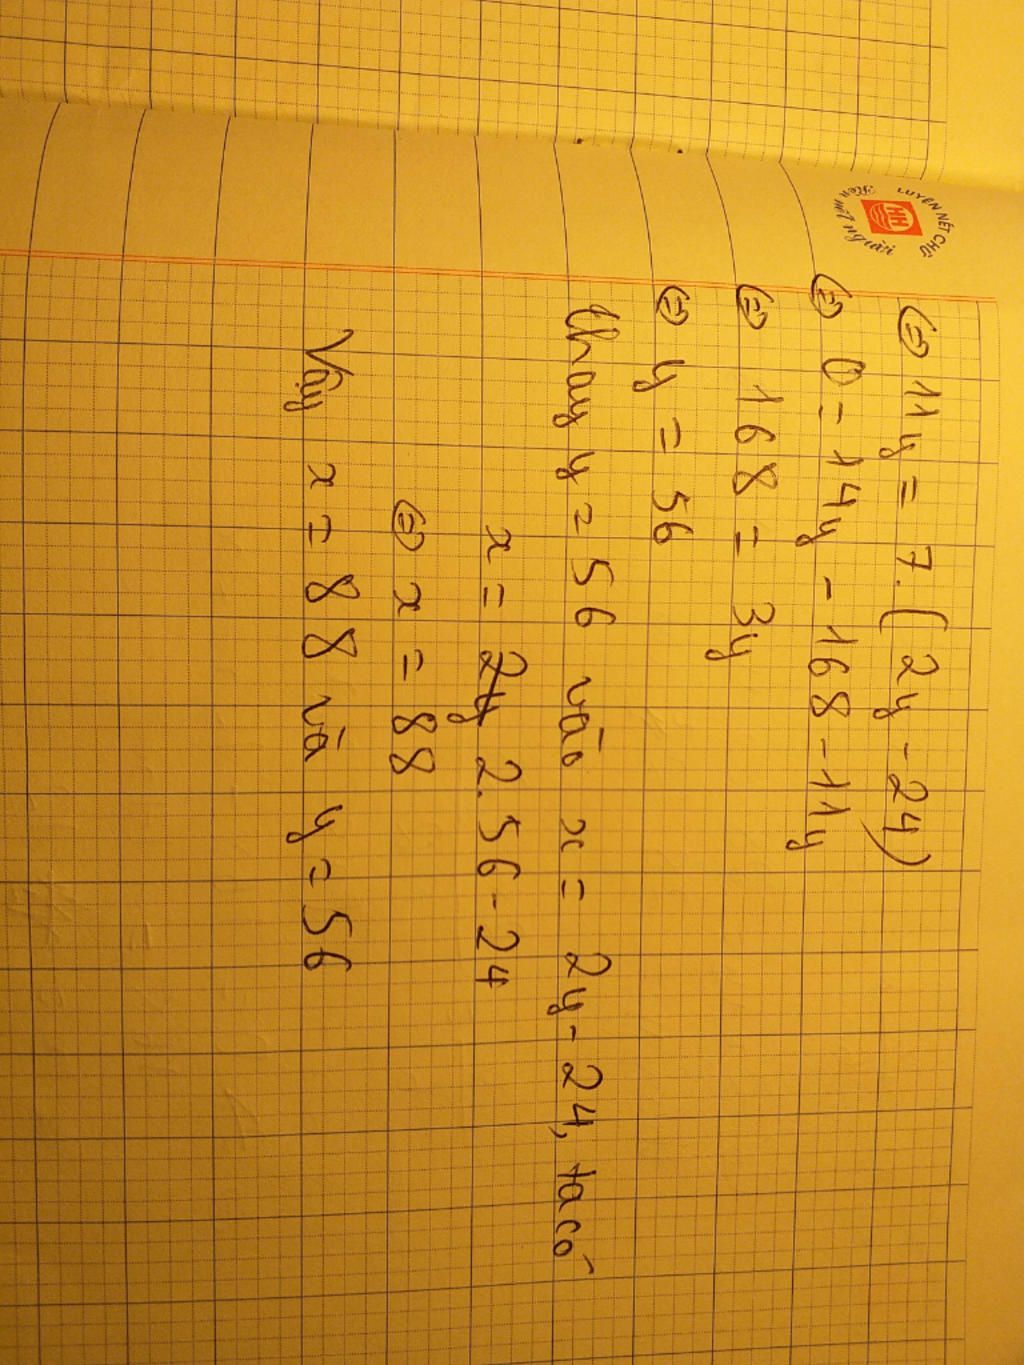 LUYỆN NÉT CHỮ
Rèn nết người
HH
(=) 11y = 7.(2y - 24)
(=) 0 = 14y - 168 - 11y
(=) 168 = 3y
(=) y = 56
thay y = 56 vào x = 2y - 24, ta có
x = 2y 2.56 - 24
(=) x = 88
Vậy x = 88 và y = 56